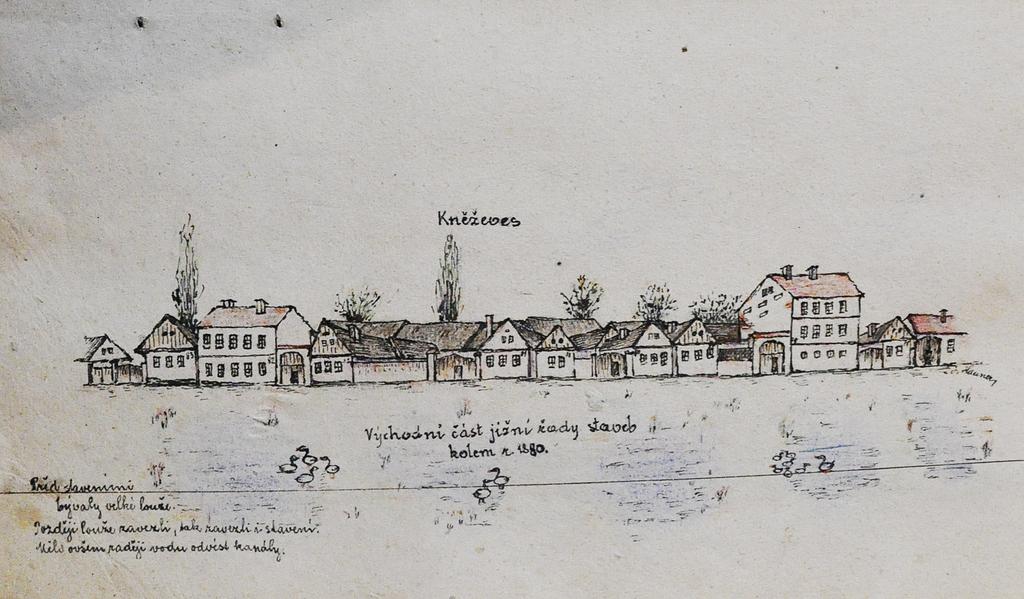 Kněževes
Východní část jižní řady staveb
kolem r. 1880.
Před staveními
bývaly velké louže.
Později louže zavezli, tak zavezli i stavení.
Mělo ovšem raději vodu odvést kanály.